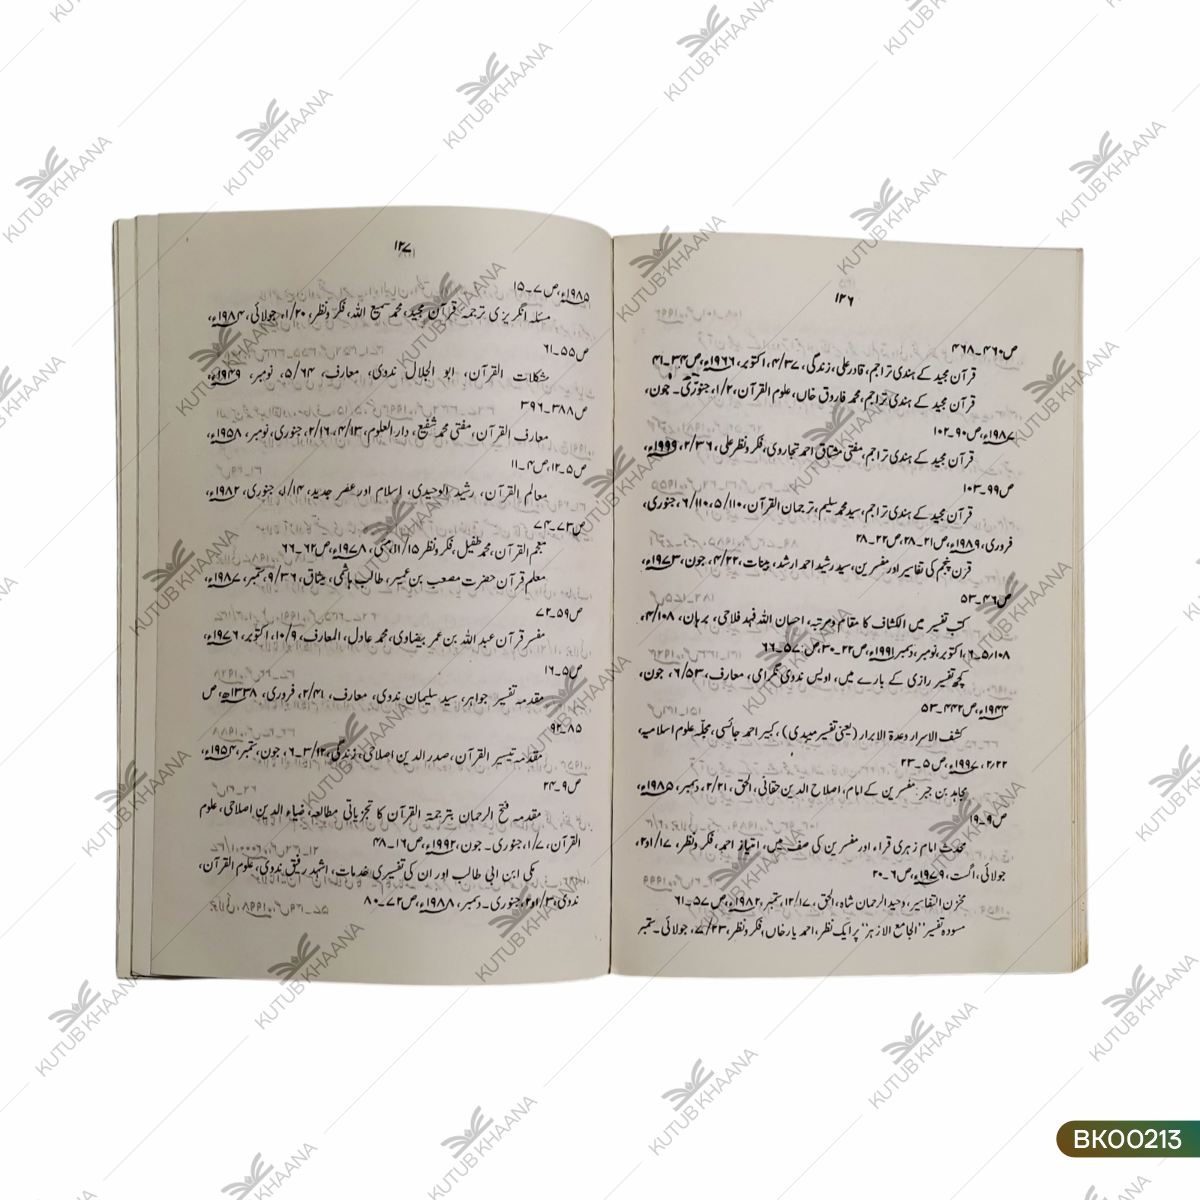 ۱۲۶
ص۴۶۰-۴۶۸
قرآن مجید کے ہندی تراجم، قادر علی، زندگی، ۴/۳۷، اکتوبر، ۱۹۶۶ء، ص۳۴-۴۱
قرآن مجید کے ہندی تراجم، محمد فاروق خاں، علوم القرآن، ۱/۲، جنوری۔ جون،
۱۹۸۷ء، ص۹۰-۱۰۲
قرآن مجید کے ہندی تراجم، مفتی مشتاق احمد تجاروی، فکر ونظر علی، ۲/۳۶، ۱۹۹۹ء،
ص۹۹-۱۰۳
قرآن مجید کے ہندی تراجم، سید محمد سلیم، ترجمان القرآن، ۵/۱۱۰، ۶/۱۱۰، جنوری،
فروری، ۱۹۸۹ء، ص۲۱-۲۸، ص۲۲-۲۸
قرن پنجم کی تفاسیر اور مفسرین، سید رشید احمد ارشد، بینات، ۴/۲۲، جون، ۱۹۷۳ء،
ص۴۶-۵۳
کتب تفسیر میں الکشاف کا مقام ومرتبہ، احسان اللہ فہد فلاحی، برہان، ۴/۱۰۸،
۵/۱۰۸-۶، اکتوبر، نومبر، دسمبر ۱۹۹۱ء، ص۲۲-۳۰، ص: ۵۷-۶۶
کچھ تفسیر رازی کے بارے میں، اویس ندوی نگرامی، معارف، ۶/۵۳، جون،
۱۹۴۴ء، ص۴۴۲-۵۳
کشف الاسرار وعدۃ الابرار (یعنی تفسیر میبدی)، کبیر احمد جائسی، مجلہ علوم اسلامیہ،
۲/۲۲، ۱۹۹۷ء، ص۵-۲۳
مجاہد بن جبر: مفسرین کے امام، اصلاح الدین حقانی، الحق، ۲/۲۱، دسمبر، ۱۹۸۵ء،
ص۹-۱۹
محدث امام زہری قراء اور مفسرین کی صف میں، امتیاز احمد، فکر ونظر، ۱/۱۷و۲،
جولائی، اگست، ۱۹۷۹ء، ص۶-۲۰
مخزن التفاسیر، وحید الرحمان شاہ، الحق، ۱۲/۱۷، ستمبر، ۱۹۸۲ء، ص۵۷-۶۱
مسودہ تفسیر "الجامع الازہر" پر ایک نظر، احمد یار خاں، فکر ونظر، ۷/۲۳، جولائی۔ ستمبر
۱۲۷
۱۹۸۵ء، ص۷-۱۵
مسئلہ انگریزی ترجمہ قرآن مجید، محمد سمیع اللہ، فکر ونظر، ۱/۲۰، جولائی، ۱۹۸۴ء،
ص۵۵-۶۱
مشکلات القرآن، ابو الجلال ندوی، معارف، ۵/۶۴، نومبر، ۱۹۴۹ء،
ص۳۸۸-۳۹۶
معارف القرآن، مفتی محمد شفیع، دار العلوم، ۴/۱۳، ۲/۱۶، جنوری، نومبر، ۱۹۵۸ء،
ص۵-۱۲، ص۴-۱۱
معالم القرآن، رشید الوحیدی، اسلام اور عصر جدید، ۱/۱۴، جنوری، ۱۹۸۲ء،
ص۷۳-۷۴
معجم القرآن، محمد طفیل، فکر ونظر ۱۱/۱۵، مئی، ۱۹۷۸ء، ص۶۲-۶۶
معلم قرآن حضرت مصعب بن عمیر، طالب ہاشمی، میثاق، ۹/۳۶، ستمبر، ۱۹۸۷ء،
ص۵۹-۷۲
مفسر قرآن عبد اللہ بن عمر بیضاوی، محمد عادل، المعارف، ۱۰/۹، اکتوبر، ۱۹۷۶ء،
ص۵-۱۶
مقدمہ تفسیر جواہر، سید سلیمان ندوی، معارف، ۲/۴۱، فروری، ۱۳۳۸ھ، ص
۸۵-۹۲
مقدمہ تیسیر القرآن، صدر الدین اصلاحی، زندگی، ۳/۱۲-۶، جون، ستمبر، ۱۹۵۴ء،
ص۹-۲۴
مقدمہ فتح الرحمان بترجمۃ القرآن کا تجزیاتی مطالعہ، ضیاء الدین اصلاحی، علوم
القرآن، ۱/۷، جنوری۔ جون، ۱۹۹۲ء، ص۱۶-۴۸
مکی ابن ابی طالب اور ان کی تفسیری خدمات، اشہد رفیق ندوی، علوم القرآن،
ندوی، ۱/۳و۲، جنوری۔ دسمبر، ۱۹۸۸ء، ص۷۲-۸۰
BK00213